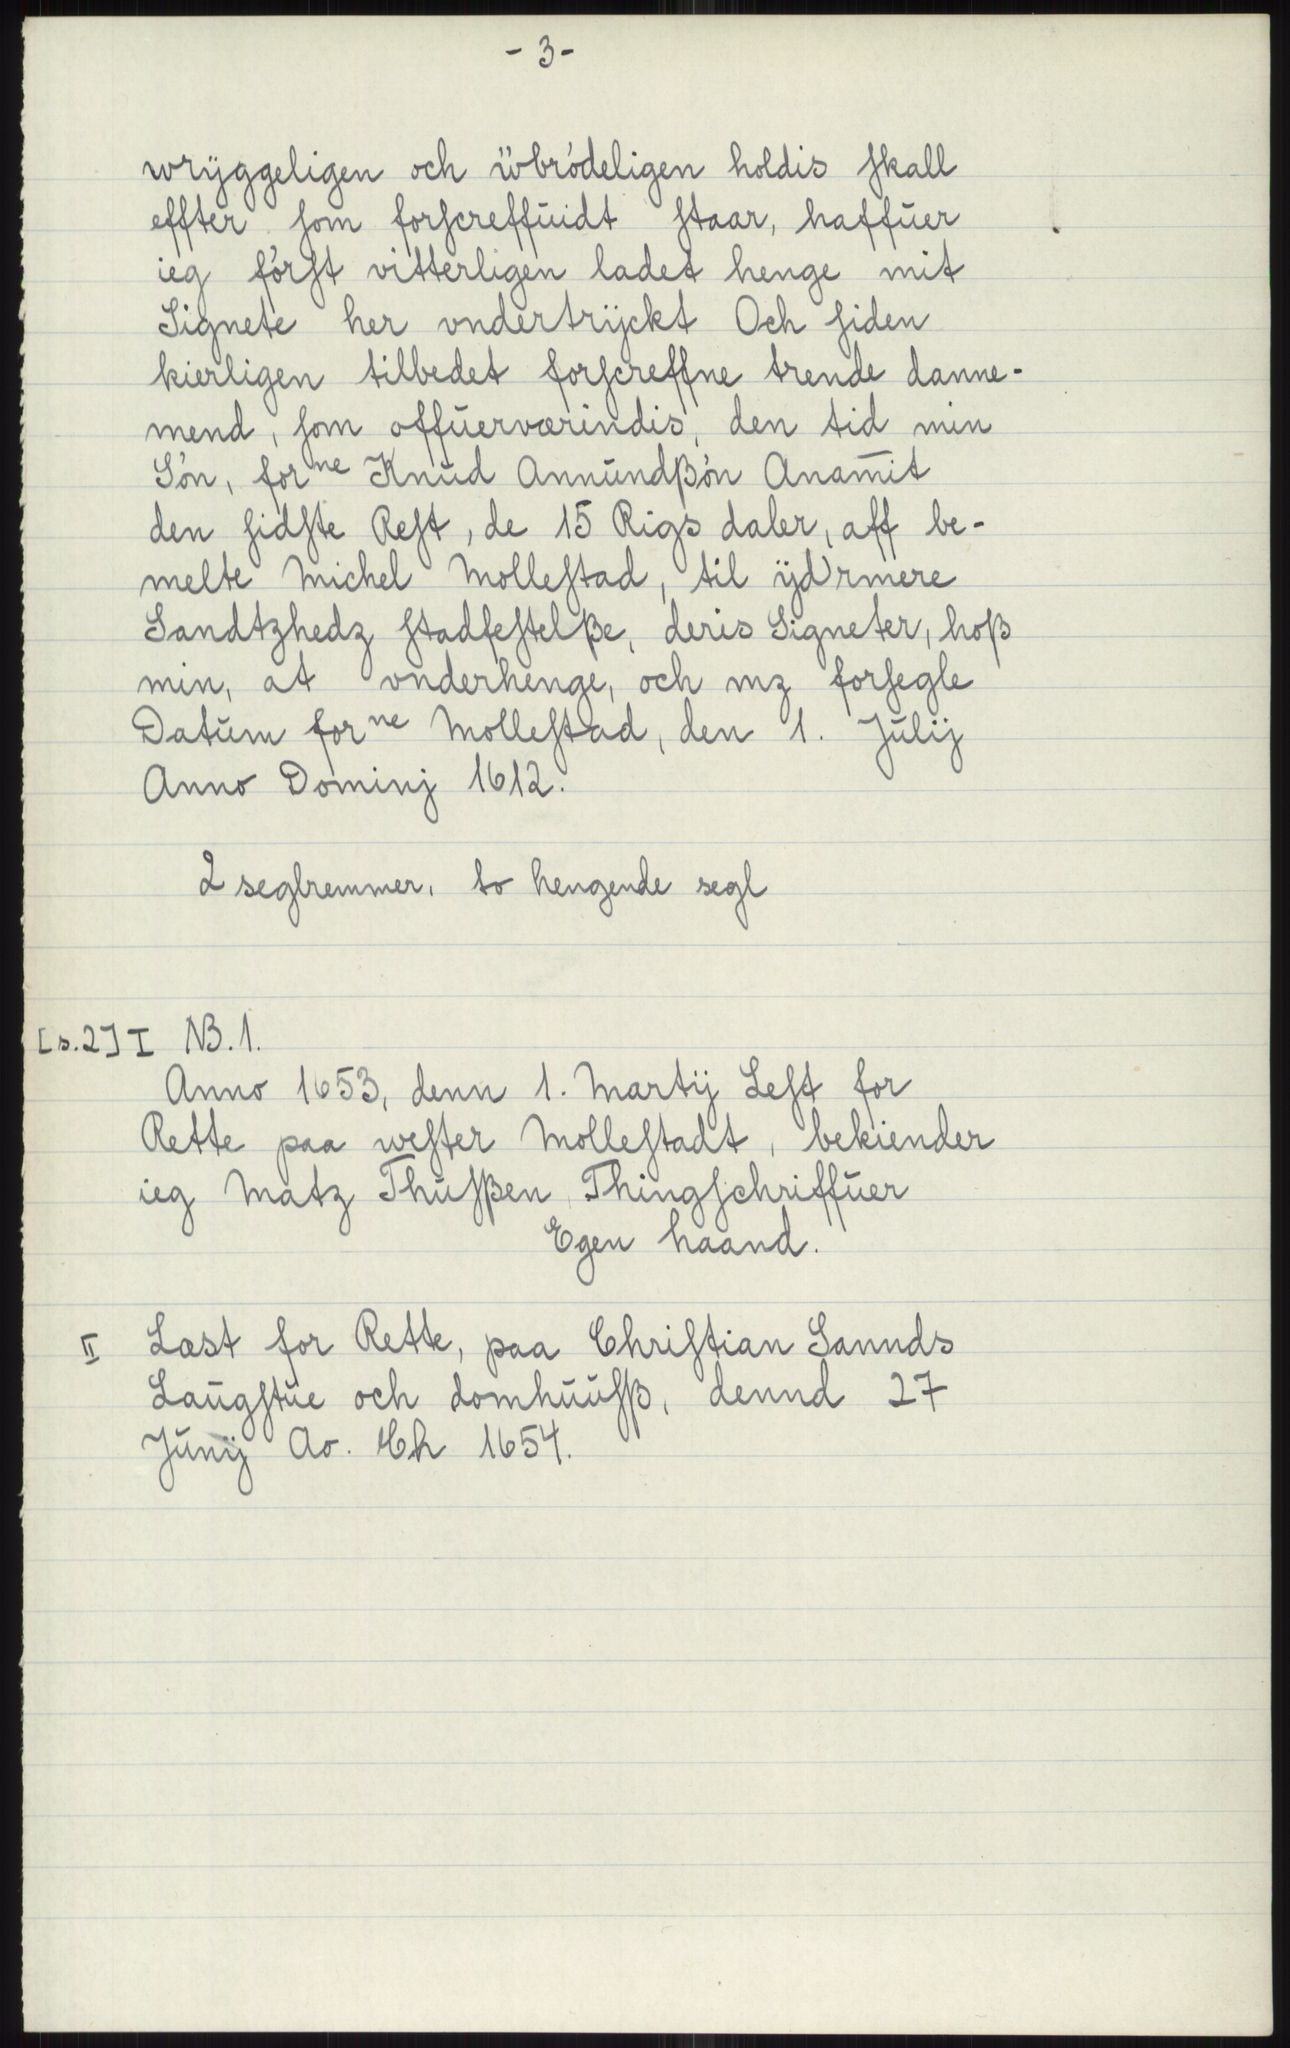 - 3 -
wrÿggeligen och ŭbródeligen holdis skall
effter som forscreffuidt staar, haffuer
ieg fórst vitterligen ladet henge mit
Signete her vndertrÿckt Och siden
kierligen tilbedet forscreffne trende danne-
mend, som offŭerværindis, den tid min
Són, forne Knŭd Annŭndßón Anam̄it
den sidste Rest, de 15 Rigs daler, aff be-
melte Michel Mollestad, til ÿdrmere
Sandtzhedz stadfestelße, deris Signeter, hoß
min, at vnderhenge, och mz forsegle
Datŭm forne Mollestad, den 1. Jŭlij
Anno Dominj 1612.
2 seglremmer, to hengende segl
[s.2] I NB. 1.
Anno 1653, denn 1. Martij Lest for
Rette paa wester Mollestadt, bekiender
ieg Matz Thŭsßen Thingschriffŭer
Egen haand.
II Læst for Rette, paa Christian Sannds
Laŭgstŭe och domhŭŭsß, dennd 27
Jŭnij Ao. Ch 1654.